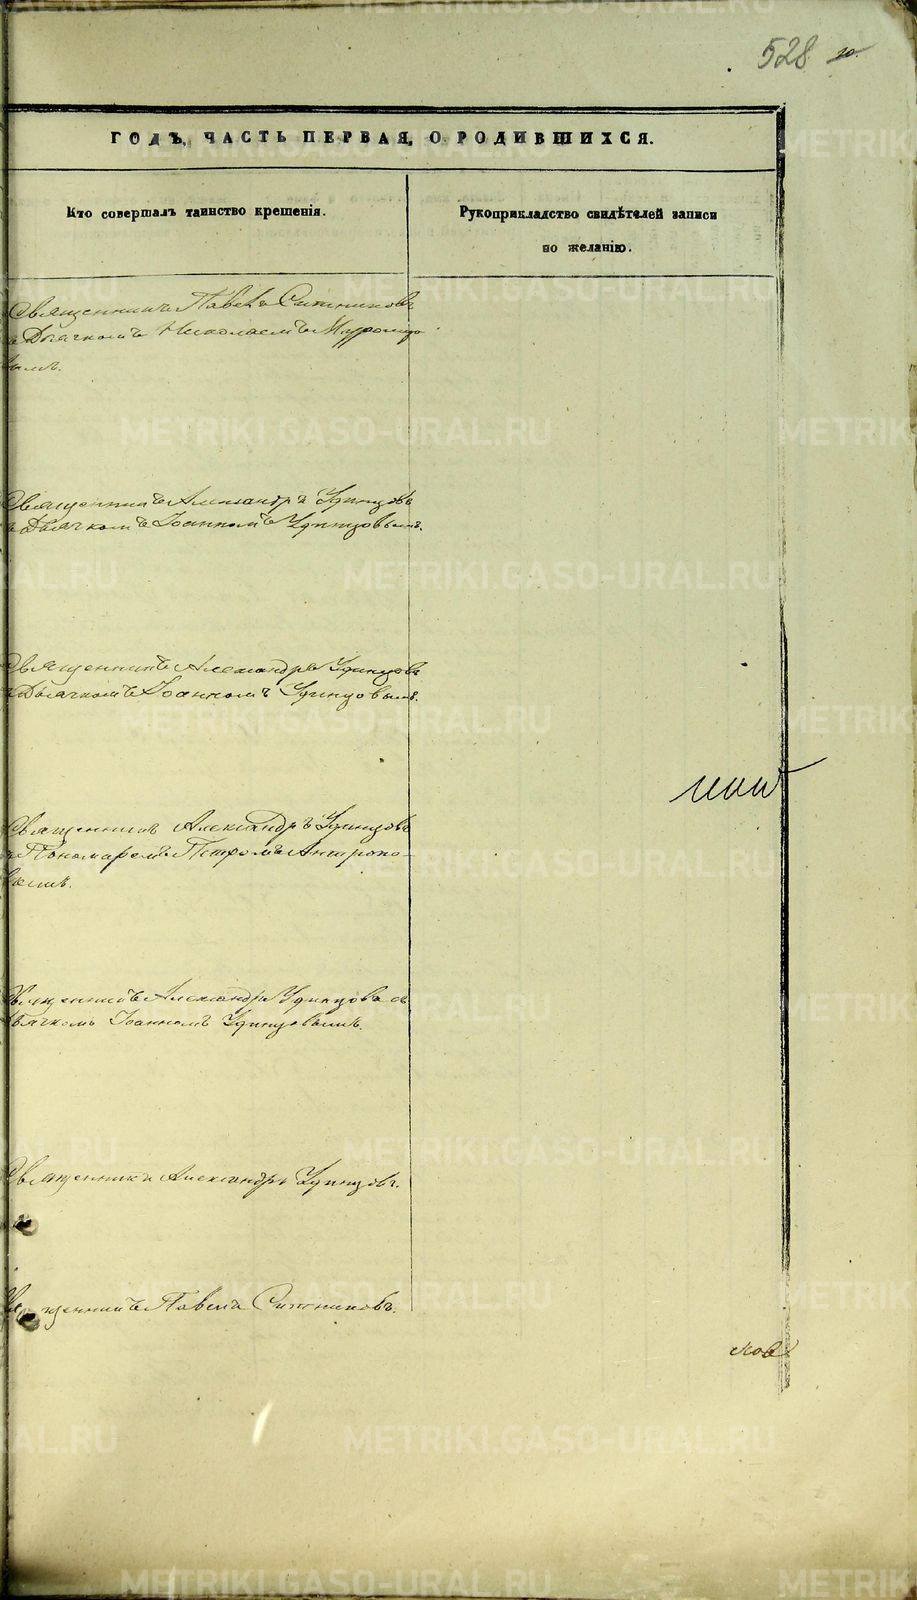 528 20.
ГОДЪ, ЧАСТЬ ПЕРВАЯ, О РОДИВШИХСЯ.
Кто совершалъ таинство крещенія.
Рукоприкладство свидѣтелей записи
по желанію.
Священникъ Павелъ Ситниковъ
съ Дьячкомъ Николаемъ Муромцо
вымъ.
Священникъ Александръ Удинцовъ
съ Дьячкомъ Іоанномъ Удинцовымъ.
Священникъ Александръ Удинцовъ
съ Дьячкомъ Іоанномъ Удинцовымъ.
Священникъ Александръ Удинцовъ
съ Пономаремъ Петромъ Антропо-
вымъ.
Священникъ Александръ Удинцовъ съ
Дьячкомъ Іоанномъ Удинцовымъ.
Священникъ Александръ Удинцовъ.
Священникъ Павелъ Ситниковъ.
ковъ
METRIKI.GASO-URAL.RU